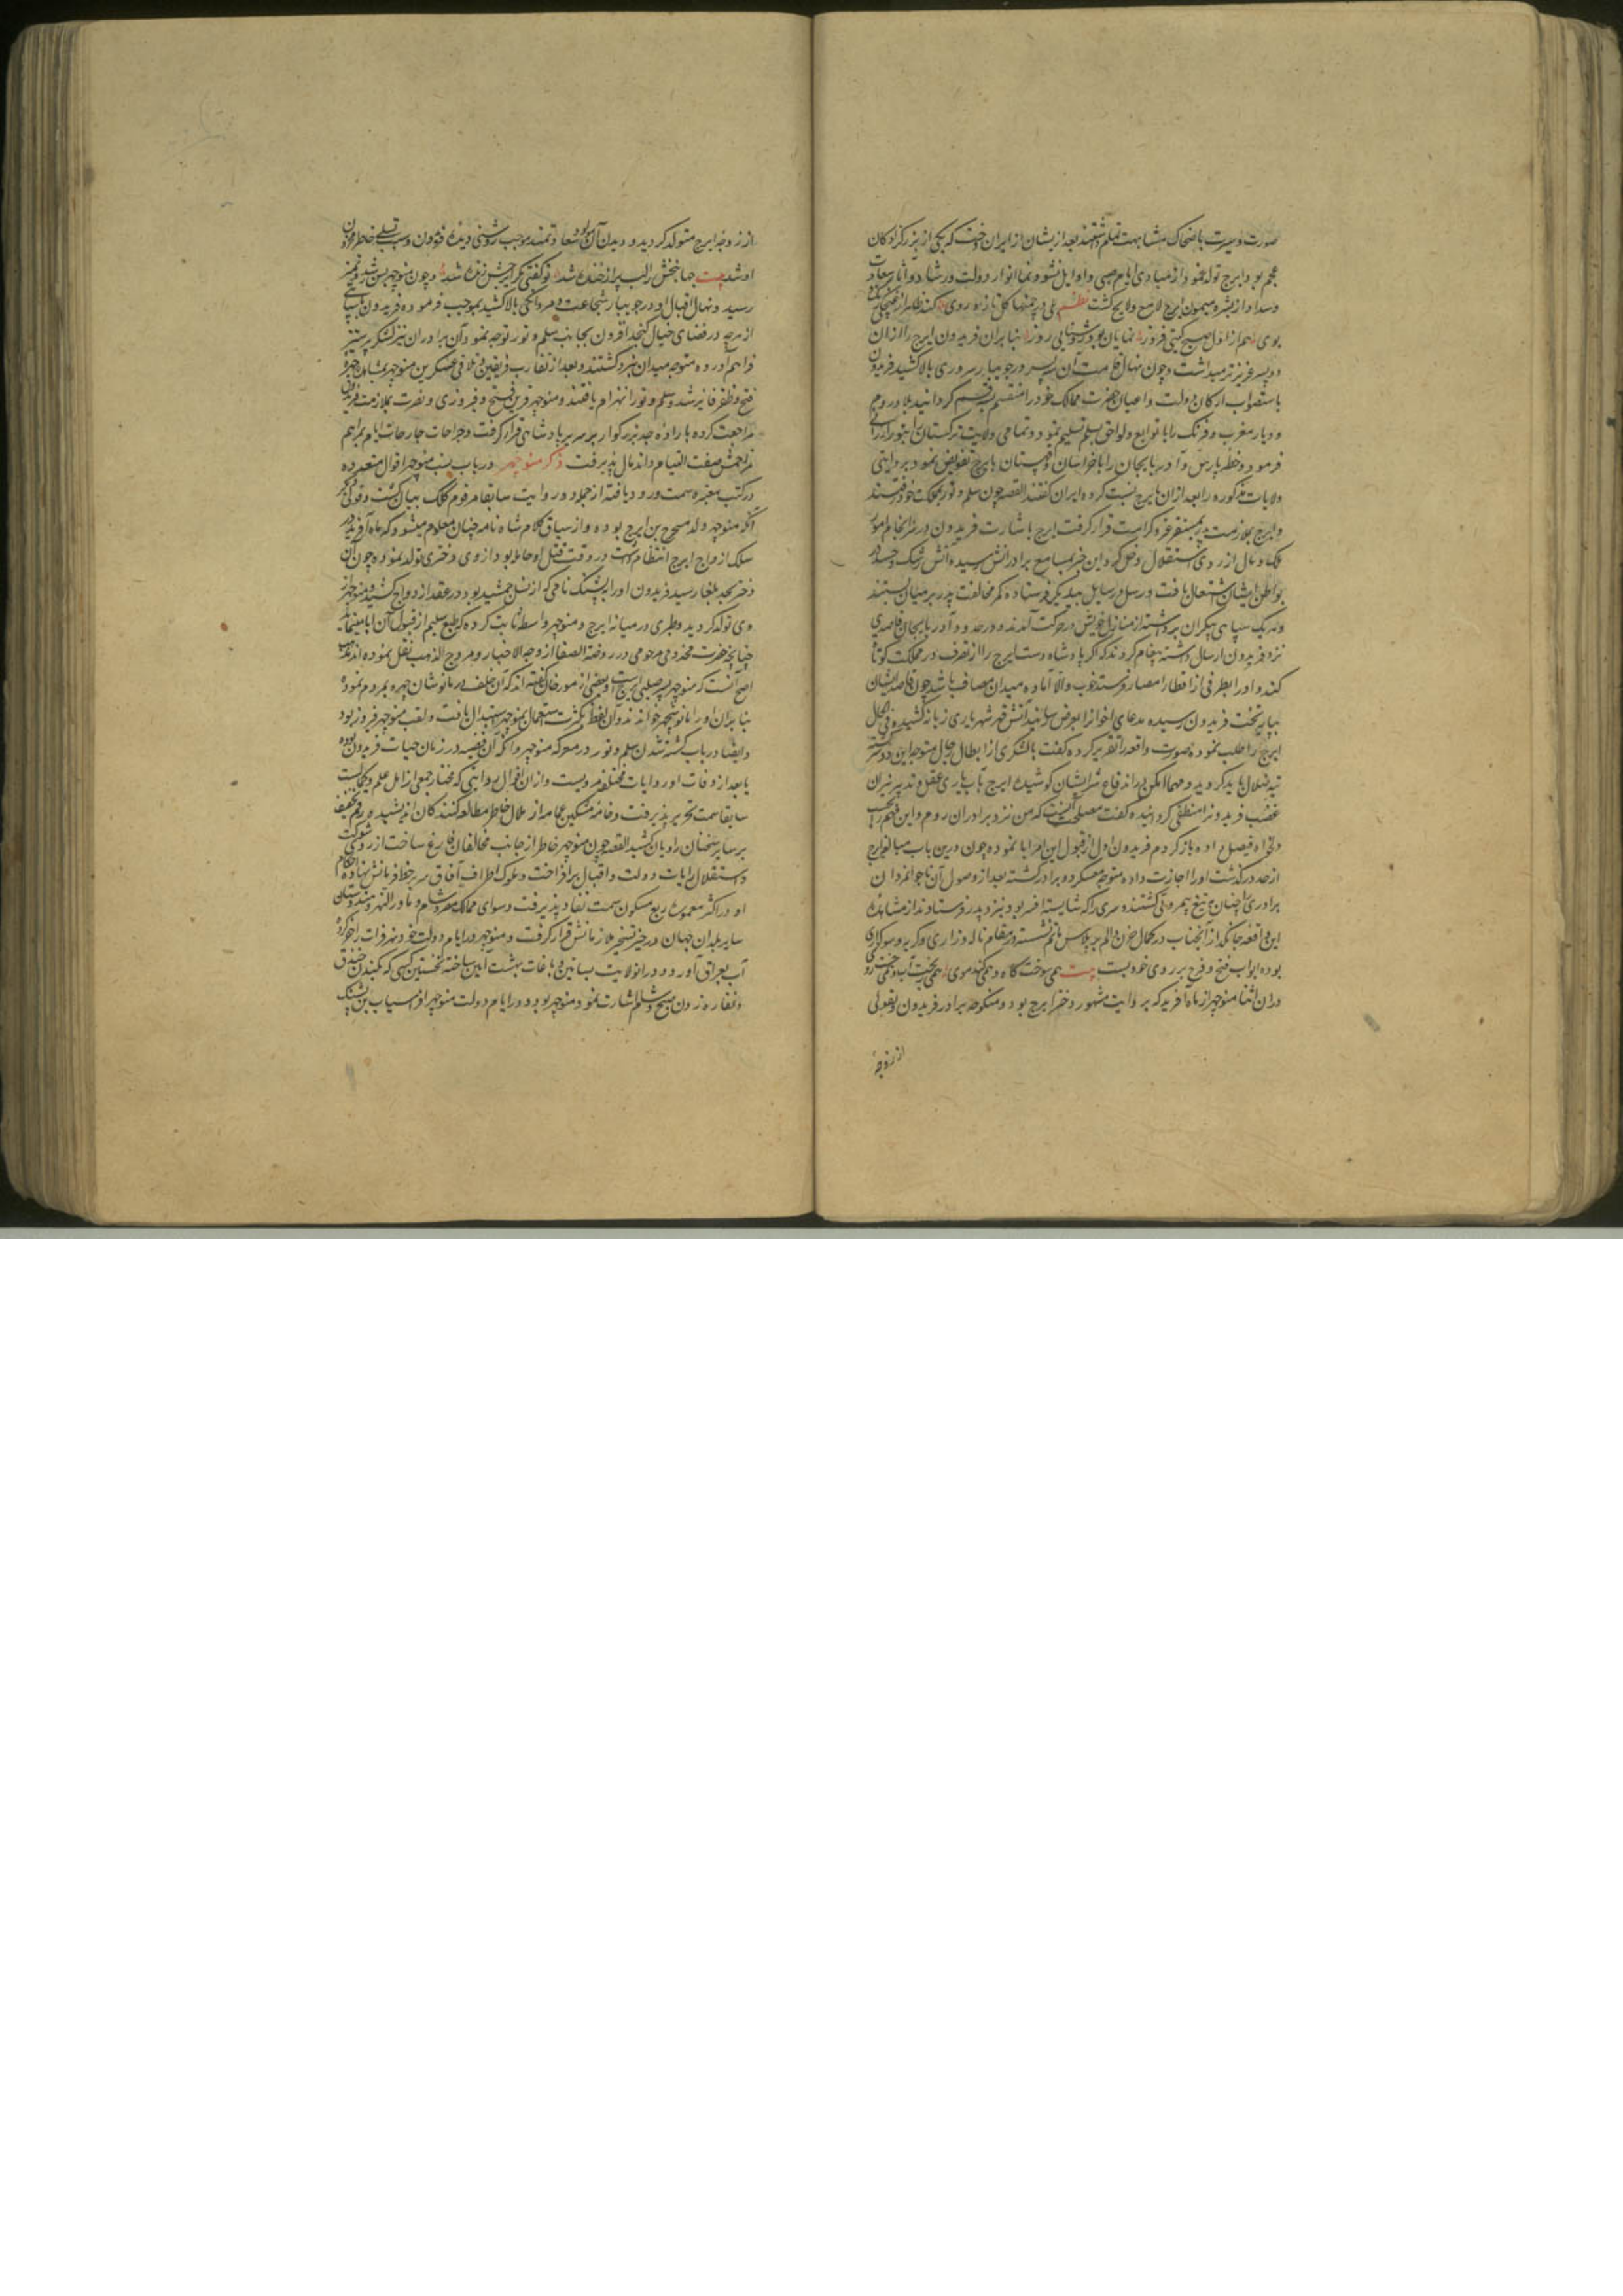 صورت و سیرت با ضحاک مشابهت تمام داشتند بعد از یشان از ایران دخت که یکی از بزرگزادکان
عجم بود ایرج تولد نمود از مبادی ایام صبی و اوایل نشو و نما انوار دولت و رشاد و آثار سعادت
وسداد از بشره میمون ایرج لامع و لایح کشت نظم بلی در چمنها کل تازه روی کند ظاهر از غنچکی
بوی هم از اول صبح کیتی فروز نمایان بود روشنایی روز بنابران فریدون ایرج را از ان
دو پسر عزیزتر میداشت و چون نهال قامت آن سه پسر در جویبار سروری بالا کشید فریدون
باستصواب ارکان دولت و اعیان حضرت ممالک خود را منقسم بسه قسم کردانید بلاد روم
و دیار مغرب و فرنک را با توابع و لواحق بسلم تسلیم نمود و تمامی ولایت ترکستان را بتور ارزانی
فرمود و خطه پارس و آذربایجان را با خراسان و قهستان بایرج تفویض نمود بروایتی
ولایات مذکوره را بعد ازان بایرج نسبت کرده ایران کفتند القصه چون سلم و تور بمملکت خود رفتند
و ایرج بملازمت پدر بمستقر عز و کرامت قرار کرفت ایرج باشارت فریدون در سرانجام امور
ملک و مال از روی استقلال دخل کرد این خبر بمسامع برادرانش رسیده آتش رشک و حسد در
بواطن ایشان اشتعال یافت و رسل و رسایل بیکدیکر فرستاده کمر مخالفت پدر بر میان بستند
و هریک سپاهی بیکران برداشته از منازل خویش در حرکت آمدند و در حدود آذربایجان قاصدی
نزد فریدون ارسال داشته پیغام کردند که اکر پادشاه دست ایرج را از تصرف در مملکت کوتاه
کند و او را بطرفی از اقطار امصار فرستد خوب و الا آماده میدان مصاف باشد چون قاصد ایشان
بپایه تخت فریدون رسیده مدعای اخوان را بعرض رسانید آتش قهر شهریاری زبانه کشیده فی الحال
ایرج را طلب نموده صورت واقعه را تقریر کرده کفت با لشکری از ابطال رجال متوجه این دو سرکشته
تیه ضلال باید کردید و مهما امکن در اندفاع شر ایشان کوشید ایرج بآب یاری عقل و تدبیر نیران
غضب فریدون را منطفی کردانیده کفت مصلحت آنست که من نزد برادران روم و این مهم را بحسب
دلخواه فیصل داده باز کردم فریدون اول از قبول این امر ابا نموده چون درین باب مبالغه ایرج
از حد درکذشت او را اجازت داده متوجه معسکر دو برادر کشته بعد از وصول آن ناجوانمردان
برادری را چنان بتیغ بیمروتی کشتند و سری را که شایسته افسر بود نزد پدر فرستادند از مشاهده
این واقعه جانکداز آنجناب در کمال حزن و الم بر پلاس ماتم نشسته در مقام ناله و زاری و کریه و سوکواری
بوده ابواب فتح و فرح بر روی خود بست بیت همی سوخت کاه و همی کند موی همی ریخت آب و همی خست روی
در ان اثنا منوچهر از ماه آفرید که بروایت مشهور دختر ایرج بود و منکوحه برادر فریدون و بقولی
از زوجه
از زوجه ایرج متولد کردید و دیدن آن مولود سعادتمند موجب روشنی دیده فریدون و سبب تسلی خاطر محزون
او شد بیت جهانبخش را لب پر از خنده شد تو کفتی مکر ایرجش زنده شد و چون منوچهر بسن رشد و تمیز
رسید و نهال اقبال او در جویبار شجاعت و مردانکی بالا کشید بموجب فرموده فریدون با سپاهی
از هرچه در فضای خیال کنجد افزون بجانب سلم و تور توجه نمود آن برادران نیز لشکر پر ستیز
فراهم آورده متوجه میدان نبرد کشتند و بعد از تقارب فریقین و تلاقی عسکرین منوچهر بمشاهده چهره
فتح و ظفر فایز شد و سلم و تور انهزام یافتند و منوچهر قرین فتح و فیروزی و نصرت بملازمت فریدون
مراجعت کرده باراده جد بزرکوار بر سریر پادشاهی قرار کرفت و جراحات جارحات ایام بمراهم
مراحمش صفت التیام و اندمال پذیرفت ذکر منوچهر در باب نسب منوچهر اقوال متعدده
در کتب معتبره سمت ورود یافته از جمله دو روایت سابقا مرقوم کلک بیان کشت و قول دیکر
آنکه منوچهر ولد مسحر بن ایرج بوده و از سیاق کلام شاه نامه چنان معلوم میشود که ماه آفرید در
سلک ازواج ایرج انتظام داشت در وقت قتل او حامله بود از وی دختری تولد نموده چون آن
دختر بحد بلغا رسید فریدون او را بپشنک نامی که از نسل جمشید بود در عقد ازدواج کشید و منوچهر از
وی تولد کردید و طبری در میانه ایرج و منوچهر واسطه ثابت کرده که طبع سلیم از قبول آن ابا مینماید
چنانچه حضرت مخدومی مرحومی در روضة الصفا از وجه الاخبار و مروج الذهب نقل نموده اند مذهب
اصح آنست که منوچهر پسر صلبی ایرج است و بعضی از مورخان کفته اند که آن خلف در مانوشان چهره بمردم نموده
بنابران او را مانوشچهر خواندند و آن لفظ بکثرت استعمال بمنوچهر استبدال یافت و لقب منوچهر فیروز بود
و ایضا در باب کشته شدن سلم و تور در معرکه منوچهر و آنکه آن قضیه در زمان حیات فریدون بوده
یا بعد از وفات او روایات مختلفه مرویست و ازان اقوال روایتی که مختار جمعی از اهل علم و کمالست
سابقا سمت تحریر پذیرفت و خامه مشکین عمامه از ملال خاطر مطالعه کنندکان اندیشیده رقم تخفیف
بر سایر سخنان راویان کشید القصه چون منوچهر خاطر از جانب مخالفان فارغ ساخت از روی شوکت
و استقلال رایات دولت و اقبال برافراخت و ملوک اطراف آفاق سر بر خط فرمانش نهاده احکام
او در اکثر معموره ربع مسکون سمت نفاد پذیرفت و سوای ممالک مصر و شام و ماوراءالنهر و هندوستان
سایر بلدان جهان در حیز تسخیر ملازمانش قرار کرفت و منوچهر در ایام دولت خود نهر فرات را حفر کرده
آب بعراق آورد و در انولایت بساتین و باغات بهشت آیین ساخته نخستین کسی که بکندن خندق
و نقاره زدن صبح و شام اشارت نمود منوچهر بود و در ایام دولت منوچهر افراسیاب بن پشنک